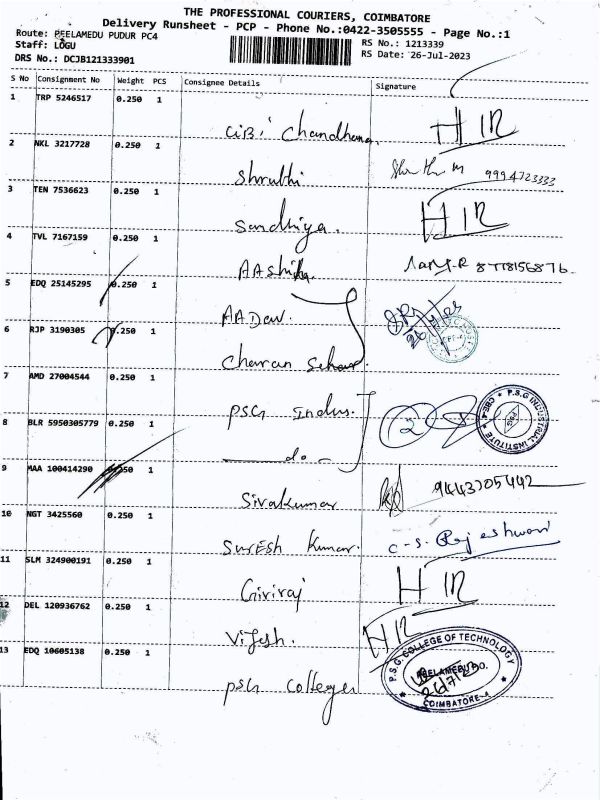 THE PROFESSIONAL COURIERS, COIMBATORE
Delivery Runsheet - PCP - Phone No.:0422-3505555 - Page No.:1
Route: PEELAMEDU PUDUR PC4
Staff: LOGU
RS No.: 1213339
DRS No.: DCJB121333901
RS Date: 26-Jul-2023
S No Consignment No Weight PCS Consignee Details Signature
1 TRP 5246517 0.250 1
CiBi Chandhana HIR
2 NKL 3217728 0.250 1
Shruthi 9994723333
3 TEN 7536623 0.250 1
Sandhiya. HIR
4 TVL 7167159 0.250 1
AAshika 8778156876.
5 EDQ 25145295 0.250 1
AADav.
6 RJP 3190305 0.250 1
Charan
7 AMD 27004544 0.250 1
PSG Indus.
P.S.G INDUSTRIAL INSTITUTE ★ CBE-4 ★
8 BLR 5950305779 0.250 1
do
9 MAA 100414290 0.250 1
Sivakumar 9443205442
10 NGT 3425560 0.250 1
SurEsh Kumar. C.S. Rajeshwari
11 SLM 324900191 0.250 1
Giriraj HIR
12 DEL 120936762 0.250 1
Vijesh. HIR
13 EDQ 10605138 0.250 1
PSG College
P.S.G. COLLEGE OF TECHNOLOGY
PEELAMEDU.O.
26/7/23
COIMBATORE-4